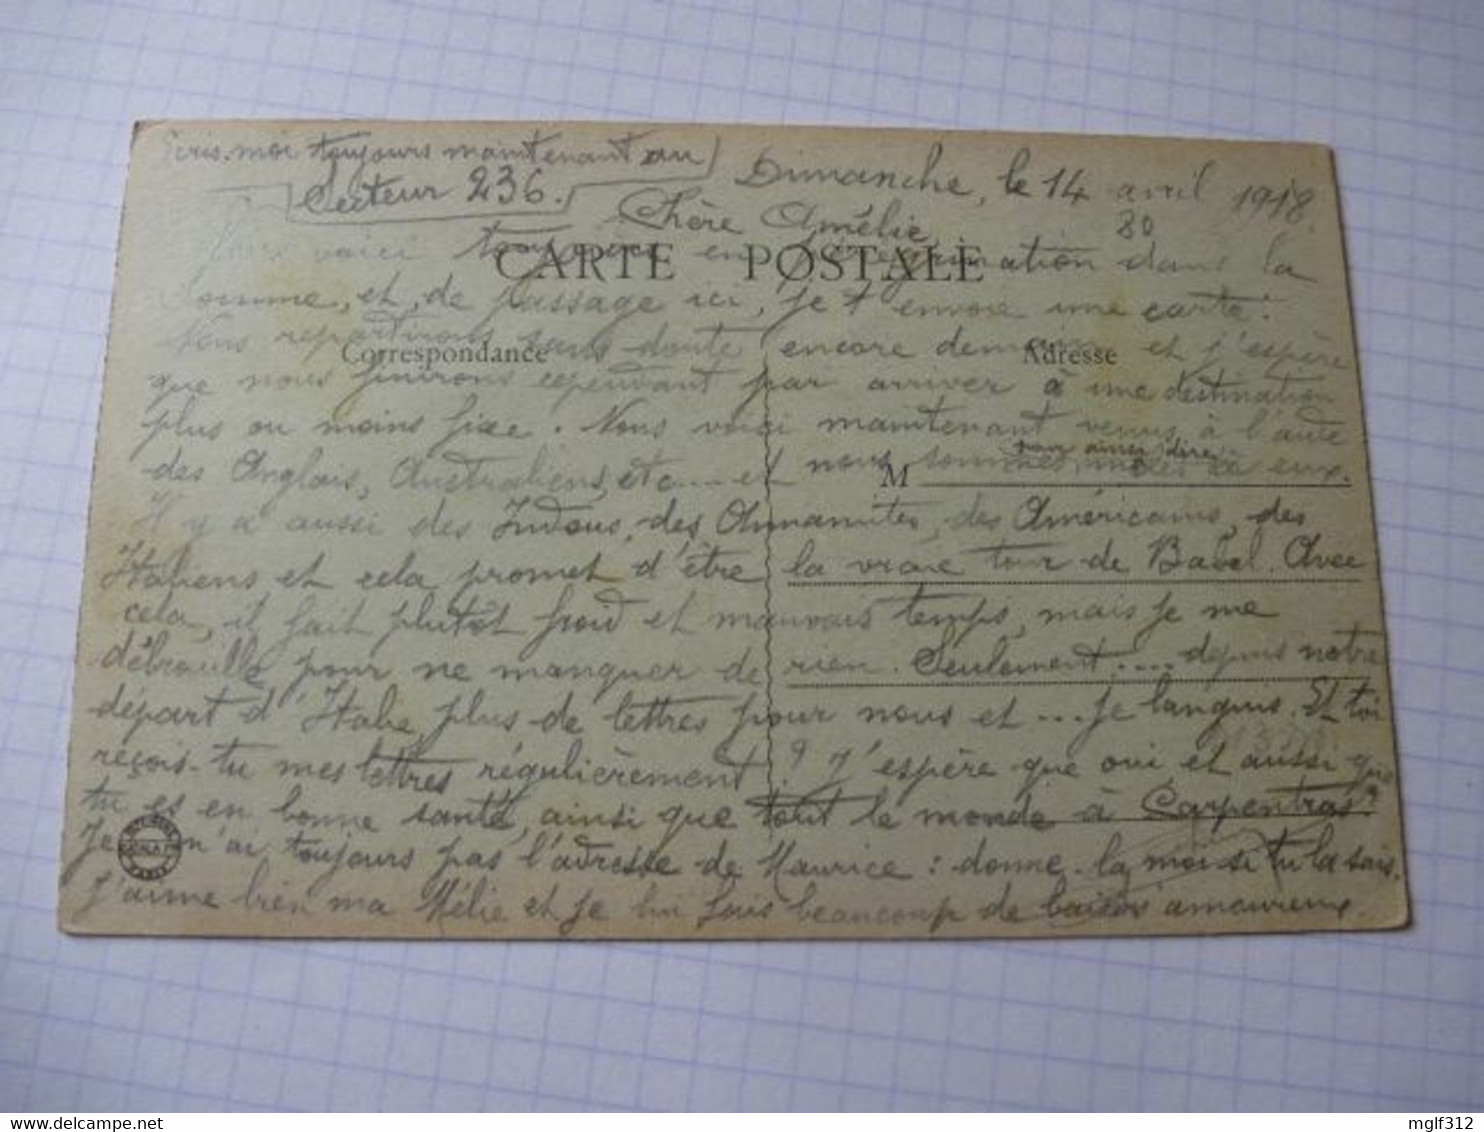 Ecris-moi toujours maintenant au
Secteur 236.
Dimanche, le 14 avril 1918.
80
Chère Amélie,
Nous voici toujours en pérégrination dans la
CARTE POSTALE
Somme, et, de passage ici, je t'envoie une carte.
Nous repartirons sans doute encore demain et j'espère
Correspondance
Adresse
que nous finirons cependant par arriver à une destination
plus ou moins fixe. Nous voici maintenant venus à l'aide
des Anglais, Australiens, etc.... et nous sommes mêlés à eux.
pour ainsi dire
M
Il y a aussi des Indous, des Annamites, des Américains, des
Italiens et cela promet d'être la vraie tour de Babel. Avec
cela, il fait plutôt froid et mauvais temps, mais je me
débrouille pour ne manquer de rien. Seulement.... depuis notre
départ d'Italie, plus de lettres pour nous et ... je languis. Et toi
reçois-tu mes lettres régulièrement ? J'espère que oui, et aussi que
tu es en bonne santé, ainsi que tout le monde à Carpentras ?
Je n'ai toujours pas l'adresse de Maurice : donne-la moi si tu la sais.
J'aime bien ma Mélie et je lui fais beaucoup de baisers amoureux.
mglf312